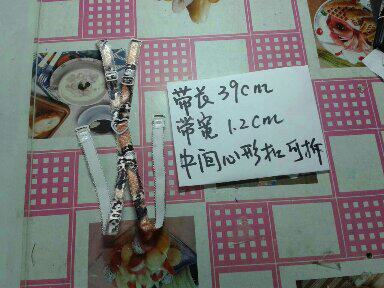 带长39cm
带宽1.2cm
中间心形扣可拆